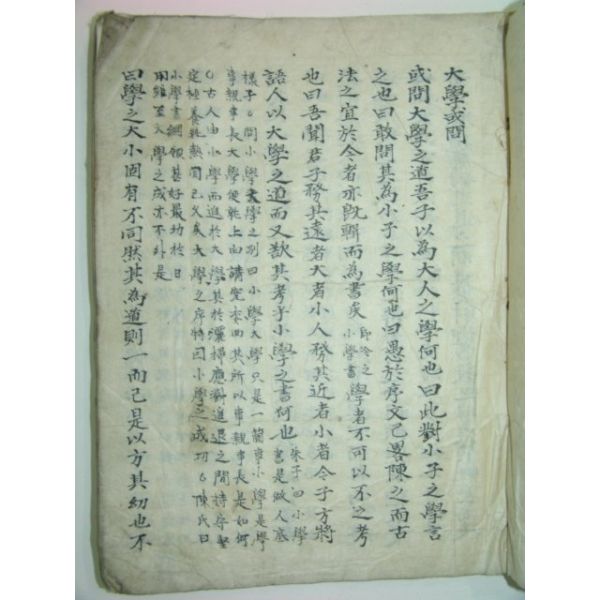 大學或問
或問大學之道吾子以為大人之學何也曰此對小子之學言
之也曰敢問其為小子之學何也曰愚於序文已畧陳之而古
法之宜於今者亦既輯而為書矣 即今之小學書 學者不可以不之考
也曰吾聞君子務其遠者大者小人務其近者小者今子方將
語人以大學之道而又欲其考乎小學之書何也 朱子曰小學書是做人底
樣子○問小學大學之別曰小學大學只是一箇事小學是學
事親事長大學便就上面講究委曲其所以事親事長是如何
○古人由小學而進於大學其於灑掃應對進退之間持守堅
定涵養純熟固已久矣大學之序特因小學之成功○陳氏曰
小學書綱領甚好最切於日
用雖至大學之成亦不外是
曰學之大小固有不同然其為道則一而已是以方其幼也不